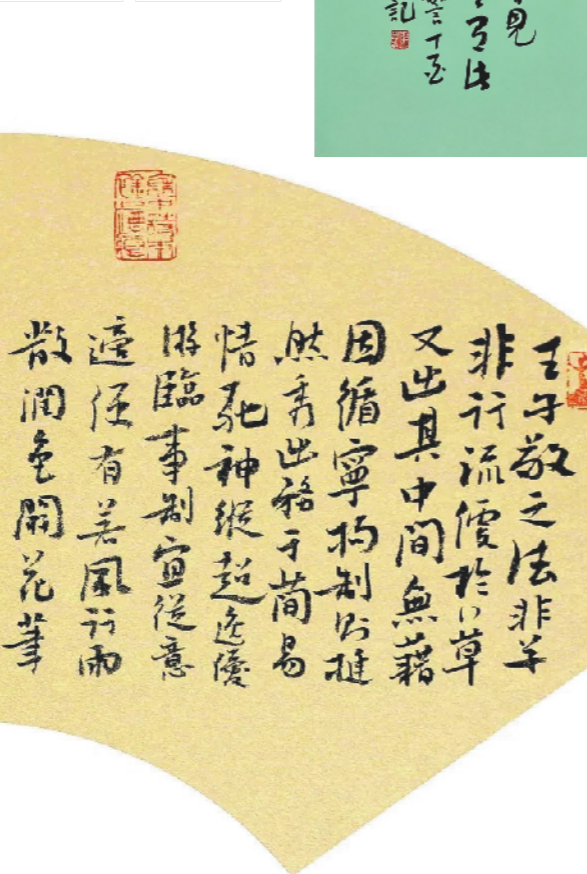 見
法
記
王子敬之法非草
非行流便於行草
又出其中間無藉
因循寧拘制則挺
然秀出務于簡易
情馳神縱超逸優
游臨事制宜從意
適便有若風行雨
散潤色開花筆